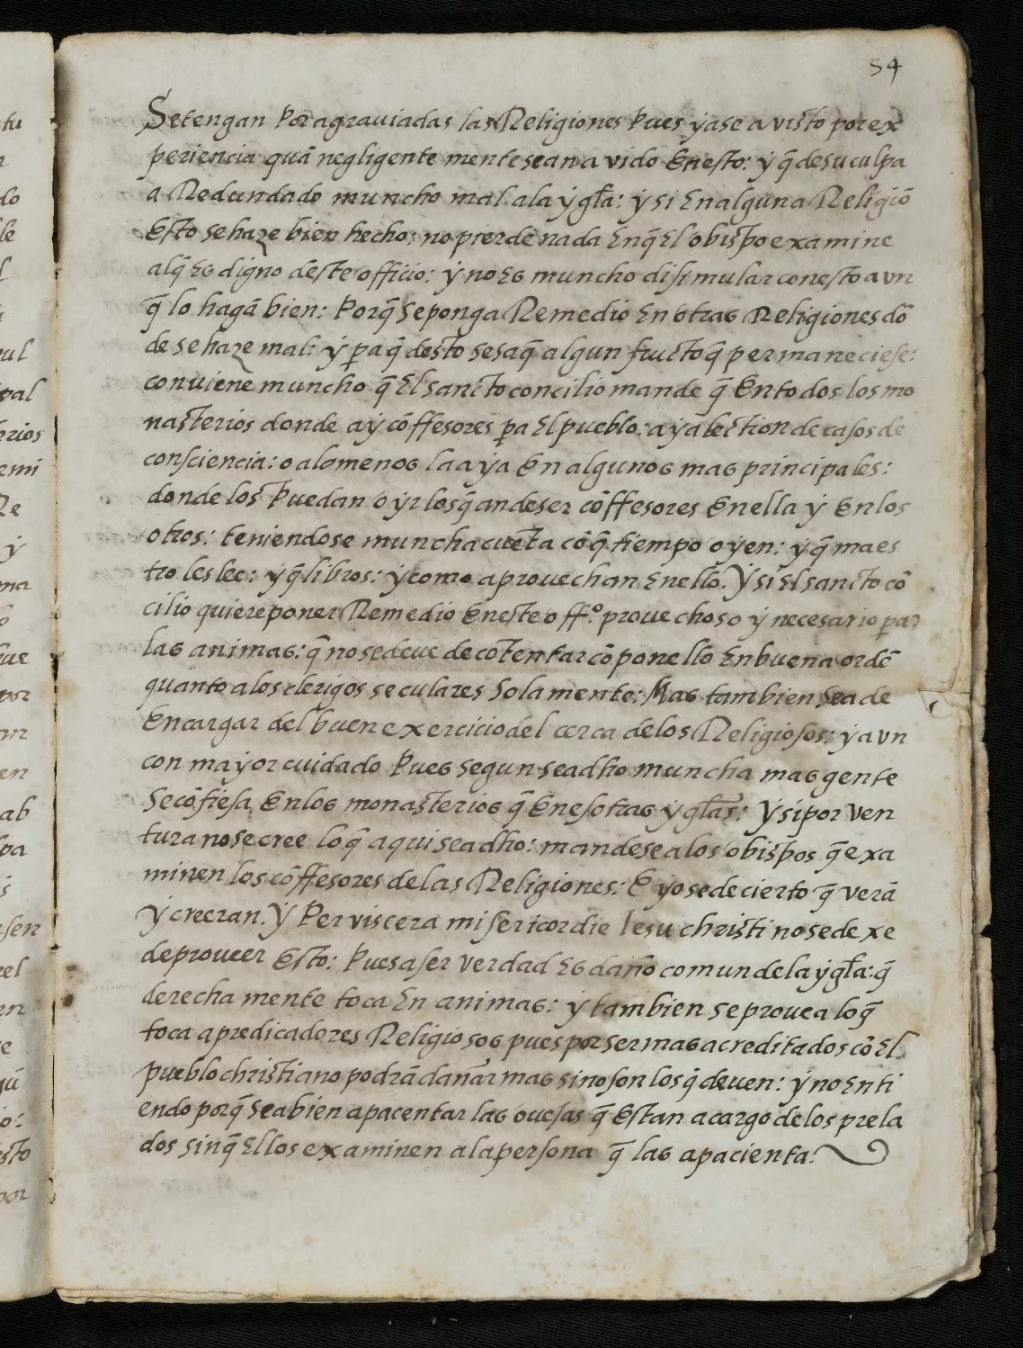 54
Se tengan por agrauiadas las Religiones pues ya se a visto por ex
periencia quā negligente mente se an a vido en esto: y q̄ de su culpa
a Redundado muncho mal a la ygła: y si en alguna Religiō
esto se haze bien hecho: no pierde nada en q̄ el obispo examine
al q̄ es digno deste officio: y no es muncho disimular con esto a vn
q̄ lo hagā bien: Porq̄ se ponga Remedio en otras Religiones dō
de se haze mal: y pa q̄ desto se saq̄ algun fructo q̄ permaneciese:
conuiene muncho q̄ el sancto concilio mande q̄ en todos los mo
nasterios donde ay cōffesores pa el pueblo: aya lection de casos de
consciencia: o alomenos la aya en algunos mas principales:
donde los puedan oyr los q̄ an de ser cōffesores en ella y en los
otros: teniendose muncha cuēta cō q̄ tiempo oyen: y q̄ maes
tro les lee: y q̄ libros: y como aprouechan en ello. Y si el sancto cō
cilio quiere poner Remedio en este off.º prouechoso y necesario pa
las animas: q̄ no se deue de cōtentar cō ponello en buena ordē
quanto a los clerigos seculares solamente: Mas tambien sea de
encargar del buen exercicio del cerca de los Religiosos: y a vn
con mayor cuidado pues segun sea dho muncha mas gente
Se cōfiesa en los monasterios q̄ en esotras ygłas: Y si por ven
tura no se cree lo q̄ aqui sea dho: mandese a los obispos q̄ exa
minen los cōffesores de las Religiones: E yo se de cierto q̄ verā
y creeran. Y Per viscera misericordie Iesu christi no se dexe
de proueer esto: Pues a ser verdad es daño comun de la ygła: q̄
derecha mente toca en animas: y tambien se prouea lo q̄
toca a predicadores Religiosos pues por ser mas acreditados cō el
pueblo christiano podrā dañar mas si no son los q̄ deuen: y no enti
endo porq̄ sea bien apacentar las ouejas q̄ estan a cargo de los prela
dos sin q̄ ellos examinen a la persona q̄ las apacienta: